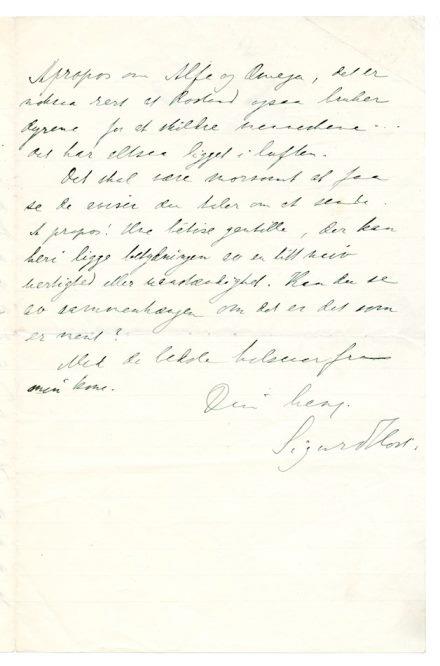 Apropos om Alfa og Omega, det er
rart at Rostand ogsaa bruker
dyrene for at skildre menneskene...
Det har altsaa ligget i luften.
Det skal være morsomt at faa
se de aviser du taler om at sende.
A propos! Une bêtise gentille, der kan
heri ligge betydningen av en litt naiv
kjærlighed eller uanstændighet. Kan du se
av sammenhængen om det er det som
er ment?
Med de bedste hilsener fra
min kone.
Din heng.
Sigurd Høst.